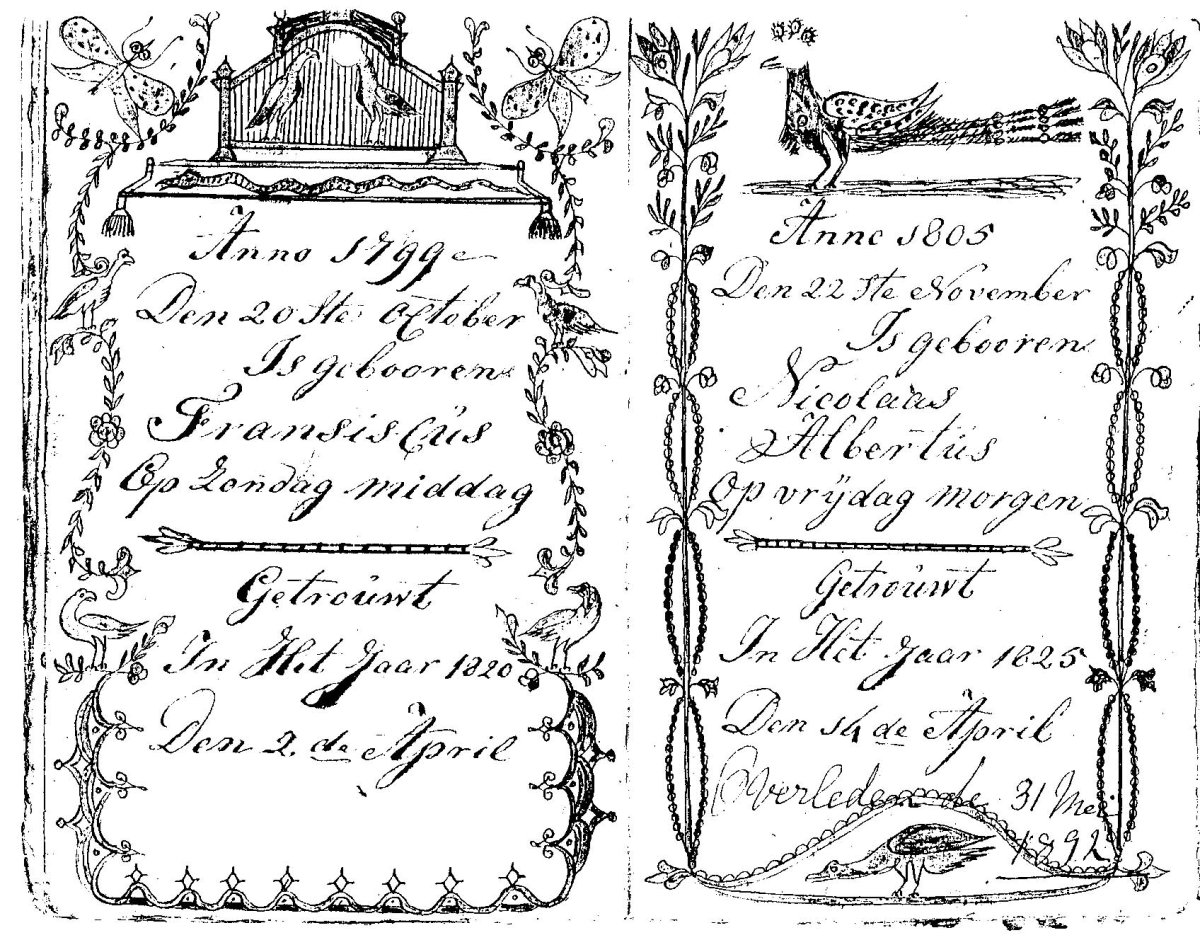 Anno 1799
Den 20 Ste October
Is gebooren
Fransiscús
Op Zondag middag
Getroúwt
In Het Jaar 1820
Den 2. de April
Anno 1805
Den 22 Ste November
Is gebooren
Nicolaas
Albertús
Op vrijdag morgen
Getroúwt
In Het Jaar 1825
Den 14 de April
Overleden de 31 Mei
1892